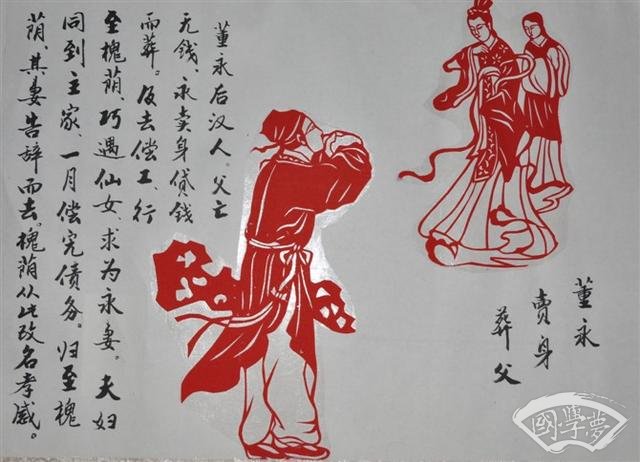 董永
賣身
葬父
董永后汉人。父亡
无钱、永卖身贷钱
而葬。后去偿工、行
至槐荫、巧遇仙女、求为永妻。夫妇
同到主家、一月偿完债务。归至槐
荫、其妻告辞而去。槐荫从此改名孝感。
國學夢